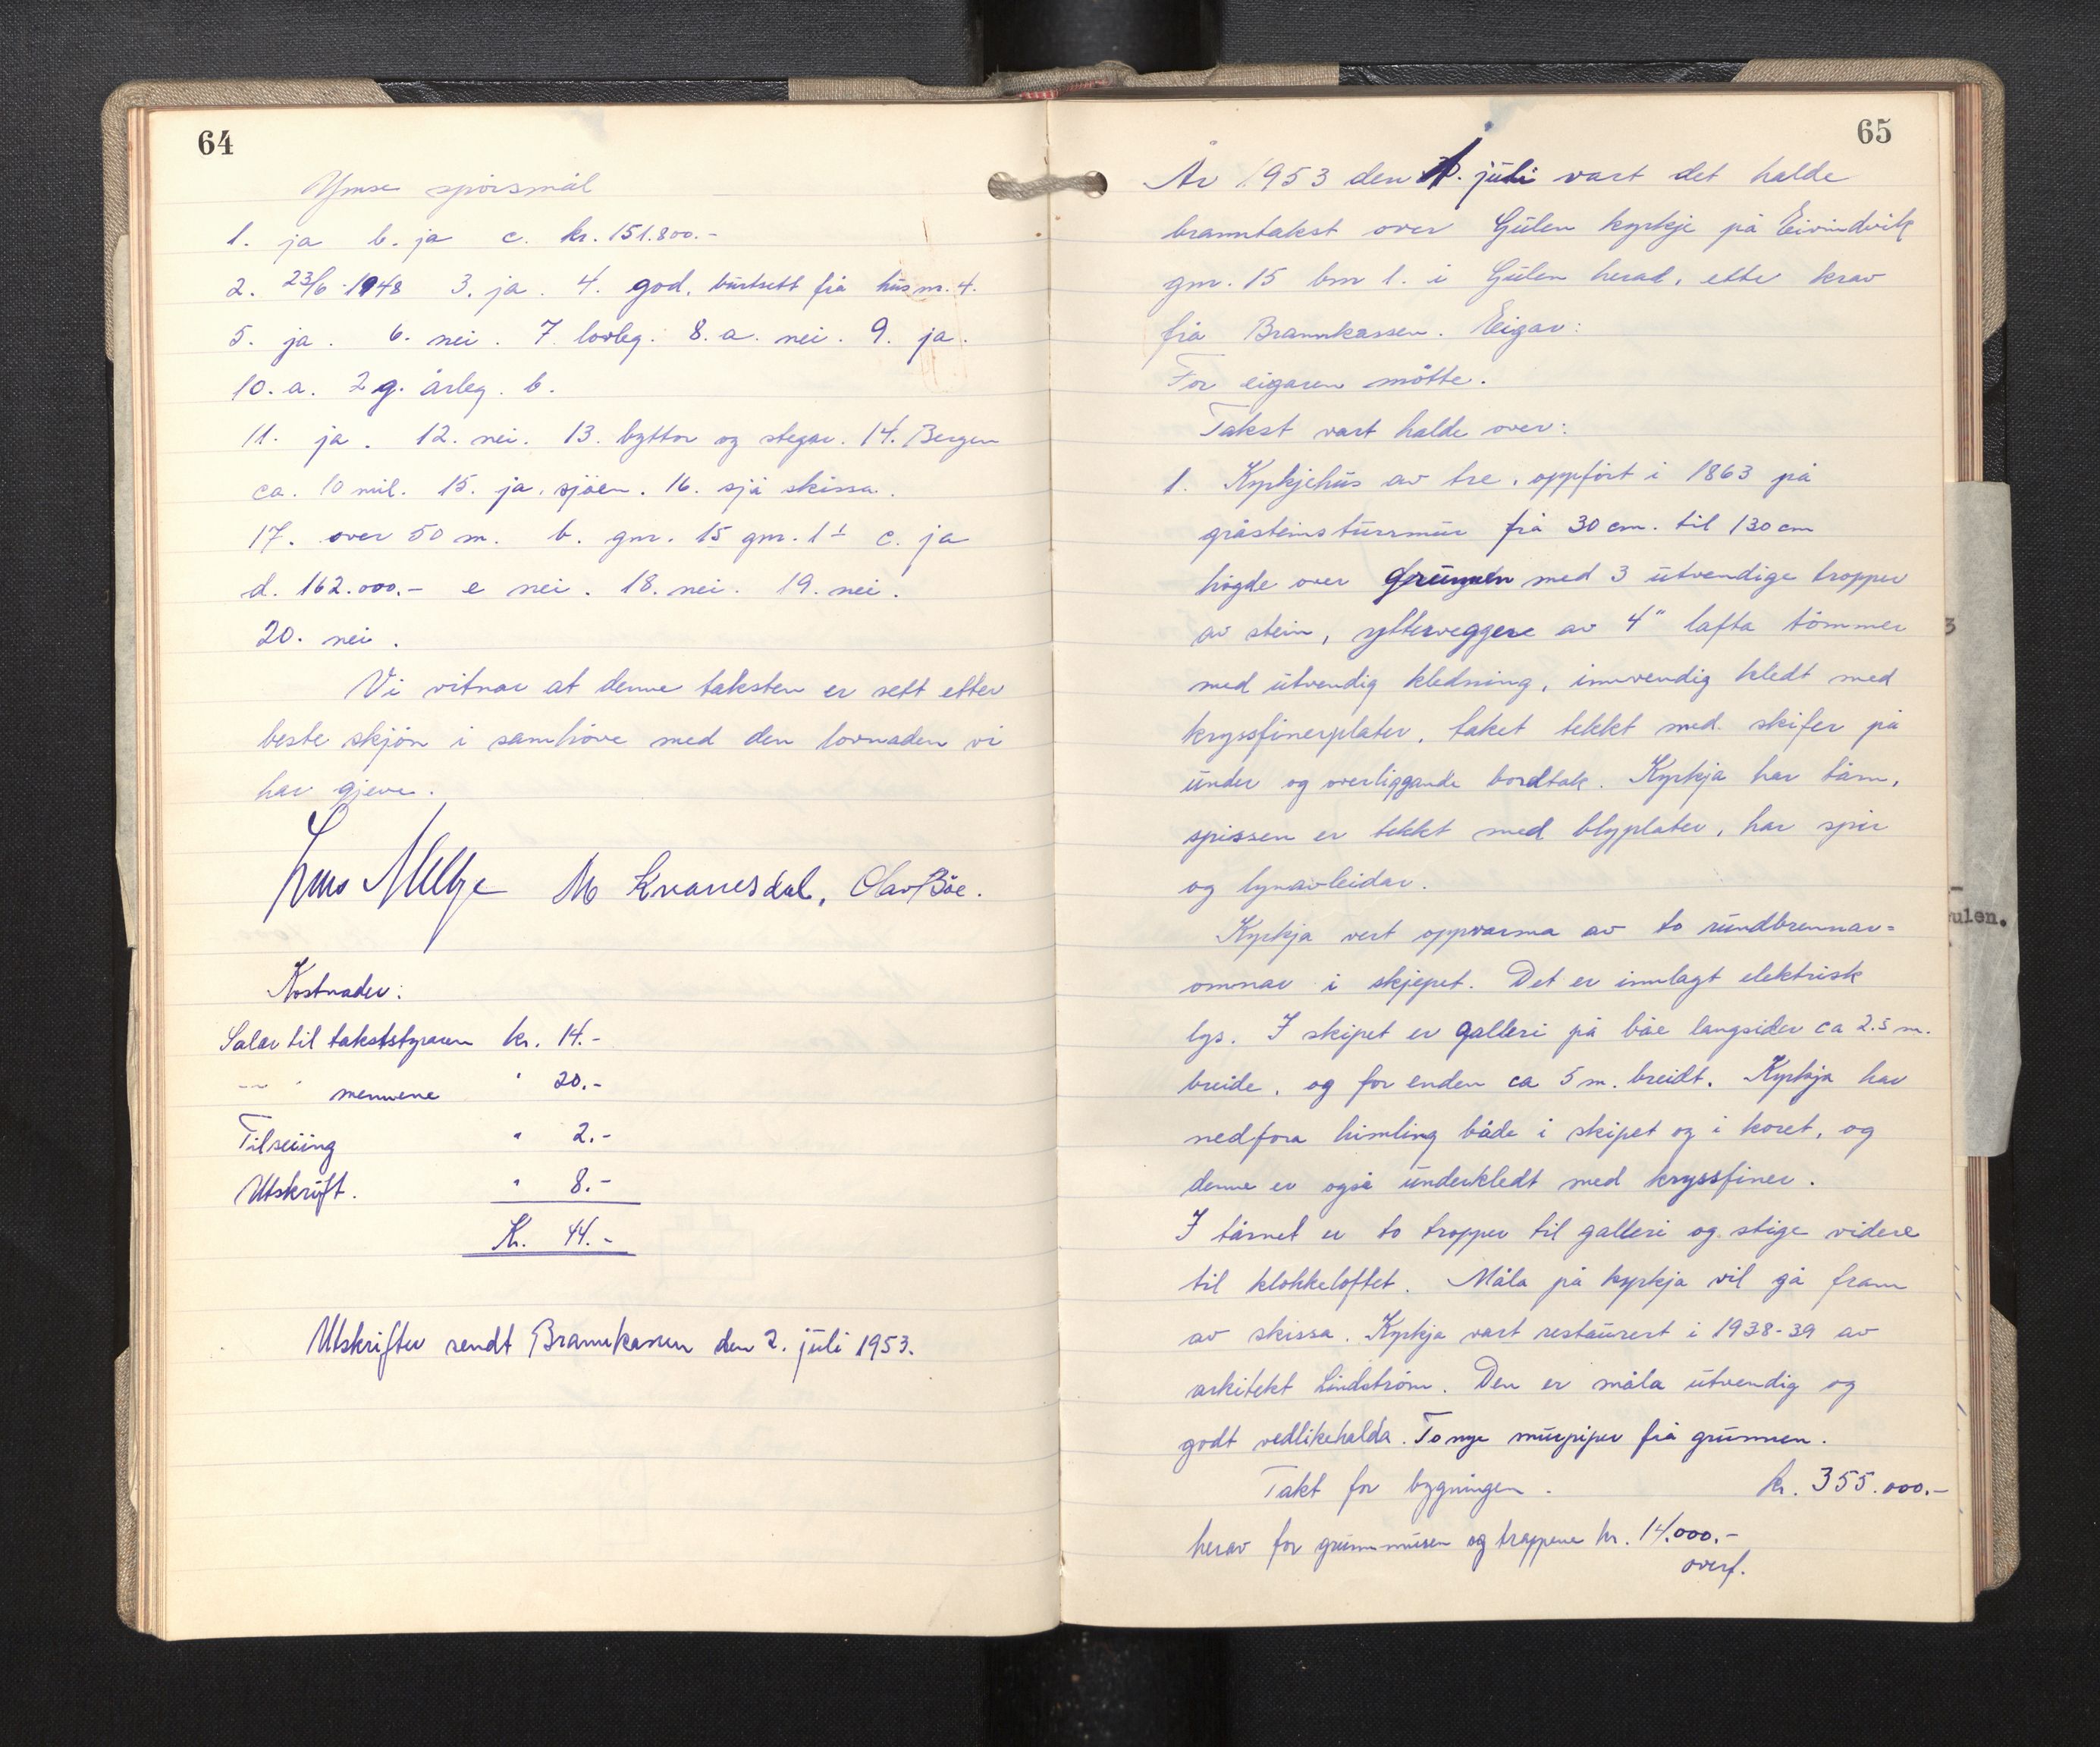 64
Ymse spörsmål
1. ja b. ja c. kr. 151.800.-
2. 23/6-1948 3. ja. 4. god, burtsett frå hus nr. 4.
5. ja. 6. nei. 7. lovleg. 8. a. nei. 9. ja.
10. a. 2 g. årleg. b.
11. ja. 12. nei. 13. byttor og stegar. 14. Bergen
ca. 10 mil. 15. ja, sjöen. 16. sjå skissa.
17. over 50 m. b. gnr. 15 gnr. 1 c. ja
d. 162.000.- e nei. 18. nei. 19. nei.
20. nei.
Vi vitnar at denne taksten er sett etter
beste skjön i samhöve med den lovnaden vi
har gjeve.
M Kvamsdal, Olav Böe.
Kostnader:
Salar til takststyraren kr. 14.-
-"- " mennene " 20.-
Tilseiing " 2.-
Utskrift. " 8.-
Kr. 44.-
Utskrifter sendt Brannkassen den 2. juli 1953.
65
År 1953 den 1. juli vart det halde
branntakst over Gulen kyrkje på Eivindvik
gnr. 15 bnr 1. i Gulen herad, etter krav
frå Brannkassen. Eigar:
For eigaren mötte.
Takst vart halde over:
1. Kyrkjehus av tre, oppfört i 1863 på
gråsteinsturrmur frå 30 cm. til 130 cm
högde over grunnen med 3 utvendige tropper
av stein, ytterveggene av 4" lafta tömmer
med utvendig kledning, innvendig kledt med
kryssfinerplater, taket tekkt med skifer på
under og overliggande bordtak. Kyrkja har tårn,
spissen er tekkt med blyplater, har spir
og lynavleidar.
Kyrkja vert oppvarma av to rundbrennar=
omnar i skjepet. Det er innlagt elektrisk
lys. I skipet er galleri på båe langsider ca 2.5 m.
breide, og for enden ca 5 m. breidt. Kyrkja har
nedfora himling både i skipet og i koret, og
denne er også underkledt med kryssfiner.
I tårnet er to tropper til galleri og stige videre
til klokkeloftet. Måla på kyrkja vil gå fram
av skissa. Kyrkja vart restaurert i 1938-39 av
arkitekt Lindström. Den er måla utvendig og
godt vedlikehalda. To nye murpiper frå grunnen.
Takt for bygningen. kr. 355.000.-
herav for grunnmuren og trappene kr. 14.000.-
overf.
3
ulen.